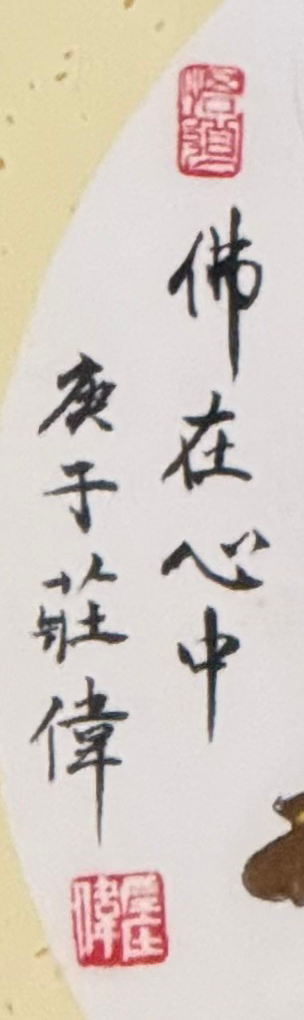 悟道
佛在心中
庚子莊偉
莊偉